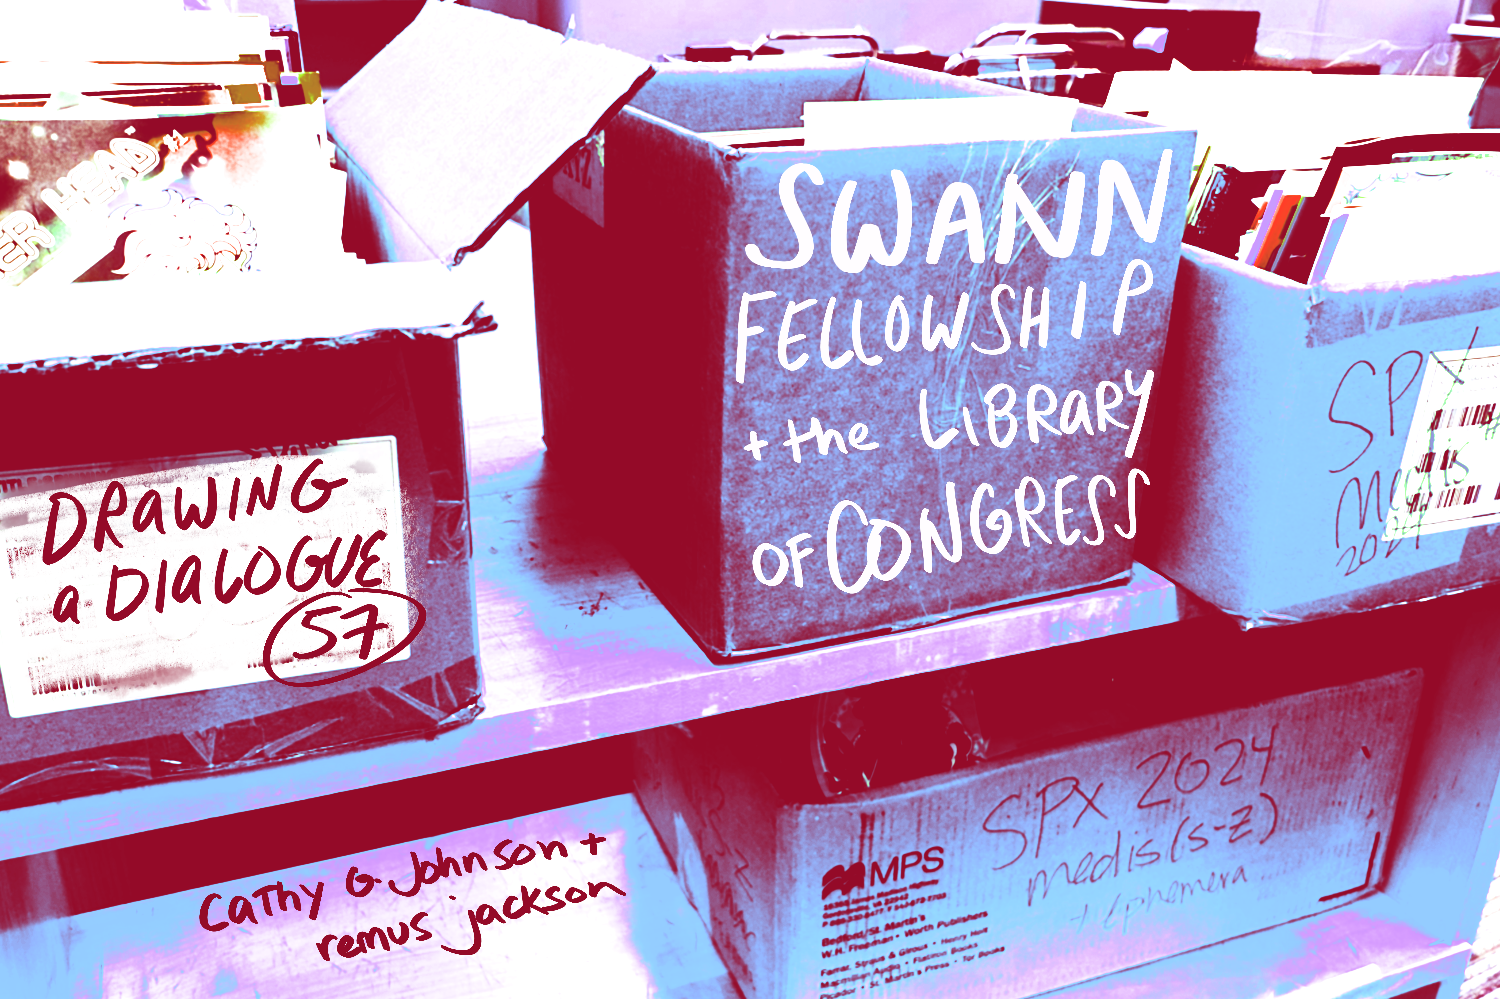 HEAD
SWANN
FELLOWSHIP
+ the LIBRARY
OF CONGRESS
DRAWING
a DIALOGUE
57
SPX
Medis
2024
SPX 2024
medis (S-Z)
+ Ephemera
MPS
Bedford/St. Martin's
W.H. Freeman • Worth Publishers
Farrar, Straus & Giroux • Henry Holt
Macmillan Audio • Flatiron Books
Picador • St. Martin's Press • Tor Books
Cathy G. Johnson +
remus jackson